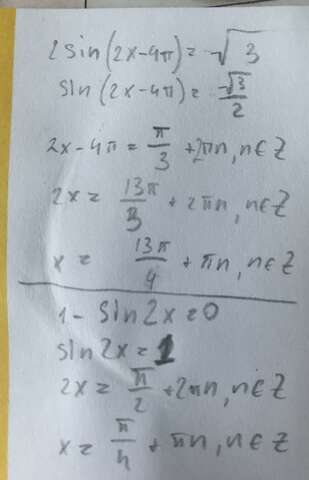 2sin(2x-4π)=-√3
sin(2x-4π)=-√3/2
2x-4π=π/3+2πn,n∈Z
2x=13π/3+2πn,n∈Z
x=13π/4+πn,n∈Z
1-sin2x=0
sin2x=1
2x=π/2+2πn,n∈Z
x=π/4+πn,n∈Z